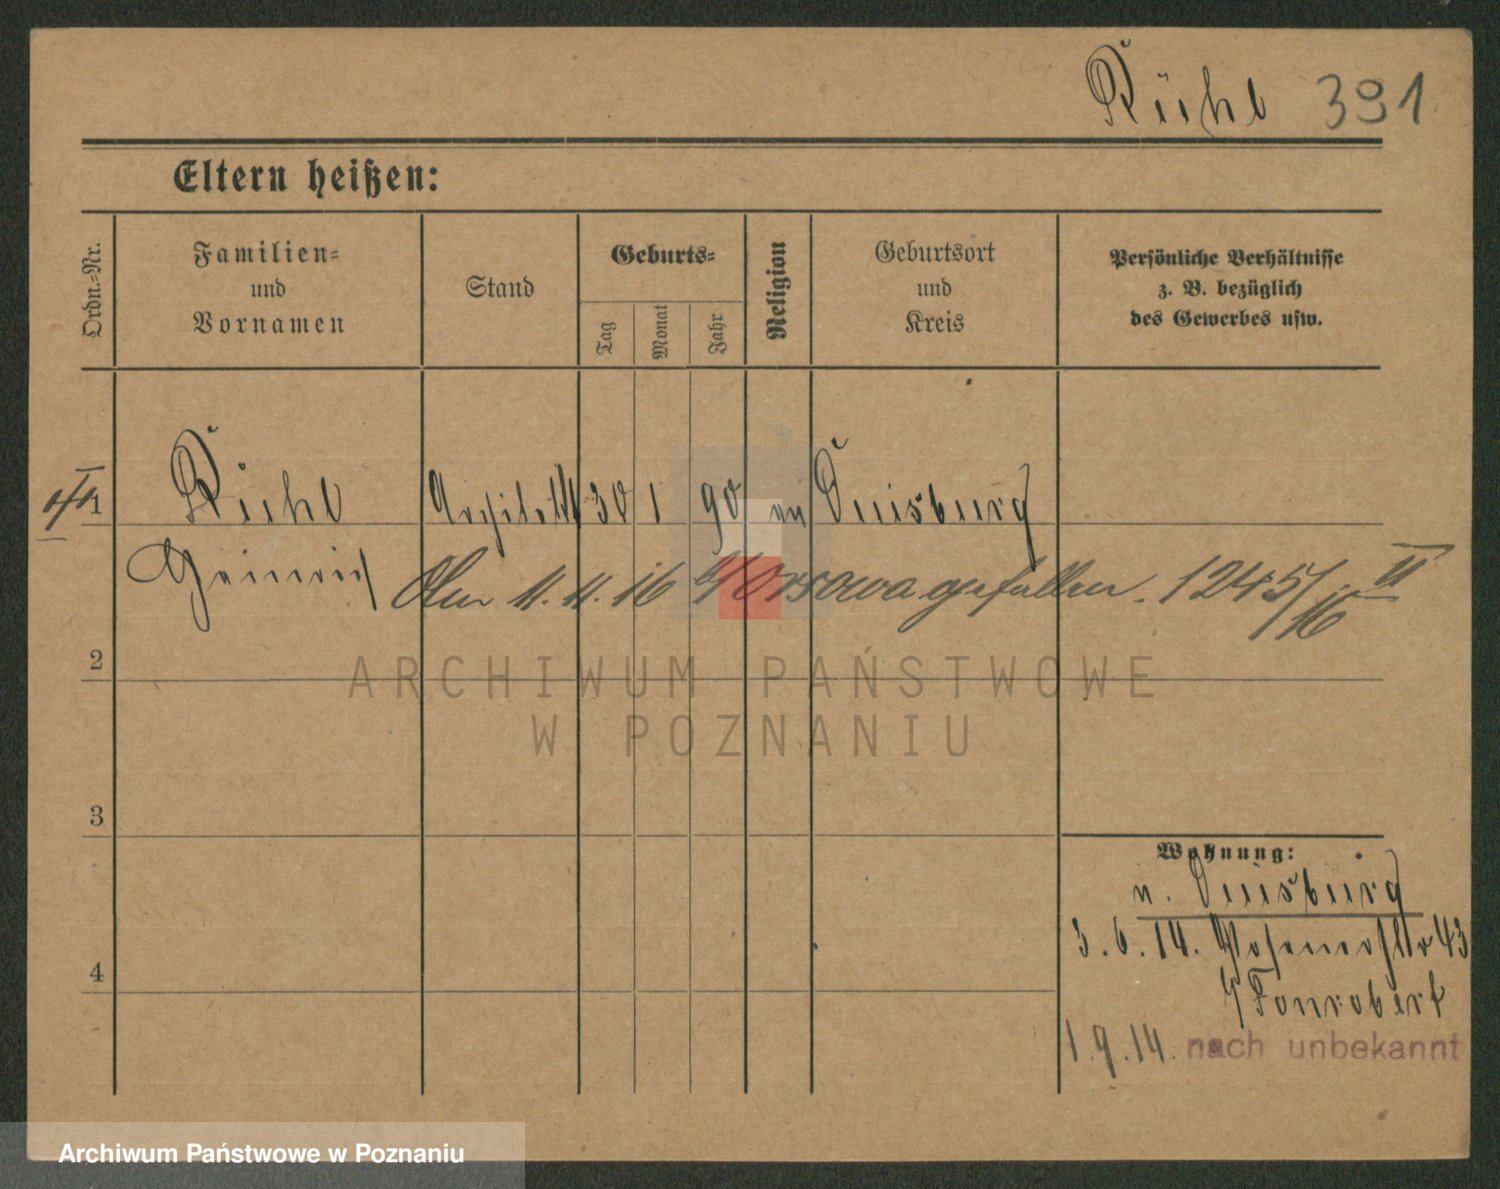 Rühl 391
Eltern heißen:
Ordn.-Nr.
Familien-
und
Vornamen
Stand
Geburts-
Tag
Monat
Jahr
Religion
Geburtsort
und
Kreis
Persönliche Verhältnisse
z. B. bezüglich
des Gewerbes usw.
1 Rühl Architekt 30 1 90 Duisburg
Heinrich
Am 11.11.16 Orsowa gefallen. 1245/16 II
2
3
4
Wohnung:
v. Duisburg
3.6.14. 43
b/ Fonrobert
1.9.14. nach unbekannt
ARCHIWUM PAŃSTWOWE
W POZNANIU
Archiwum Państwowe w Poznaniu